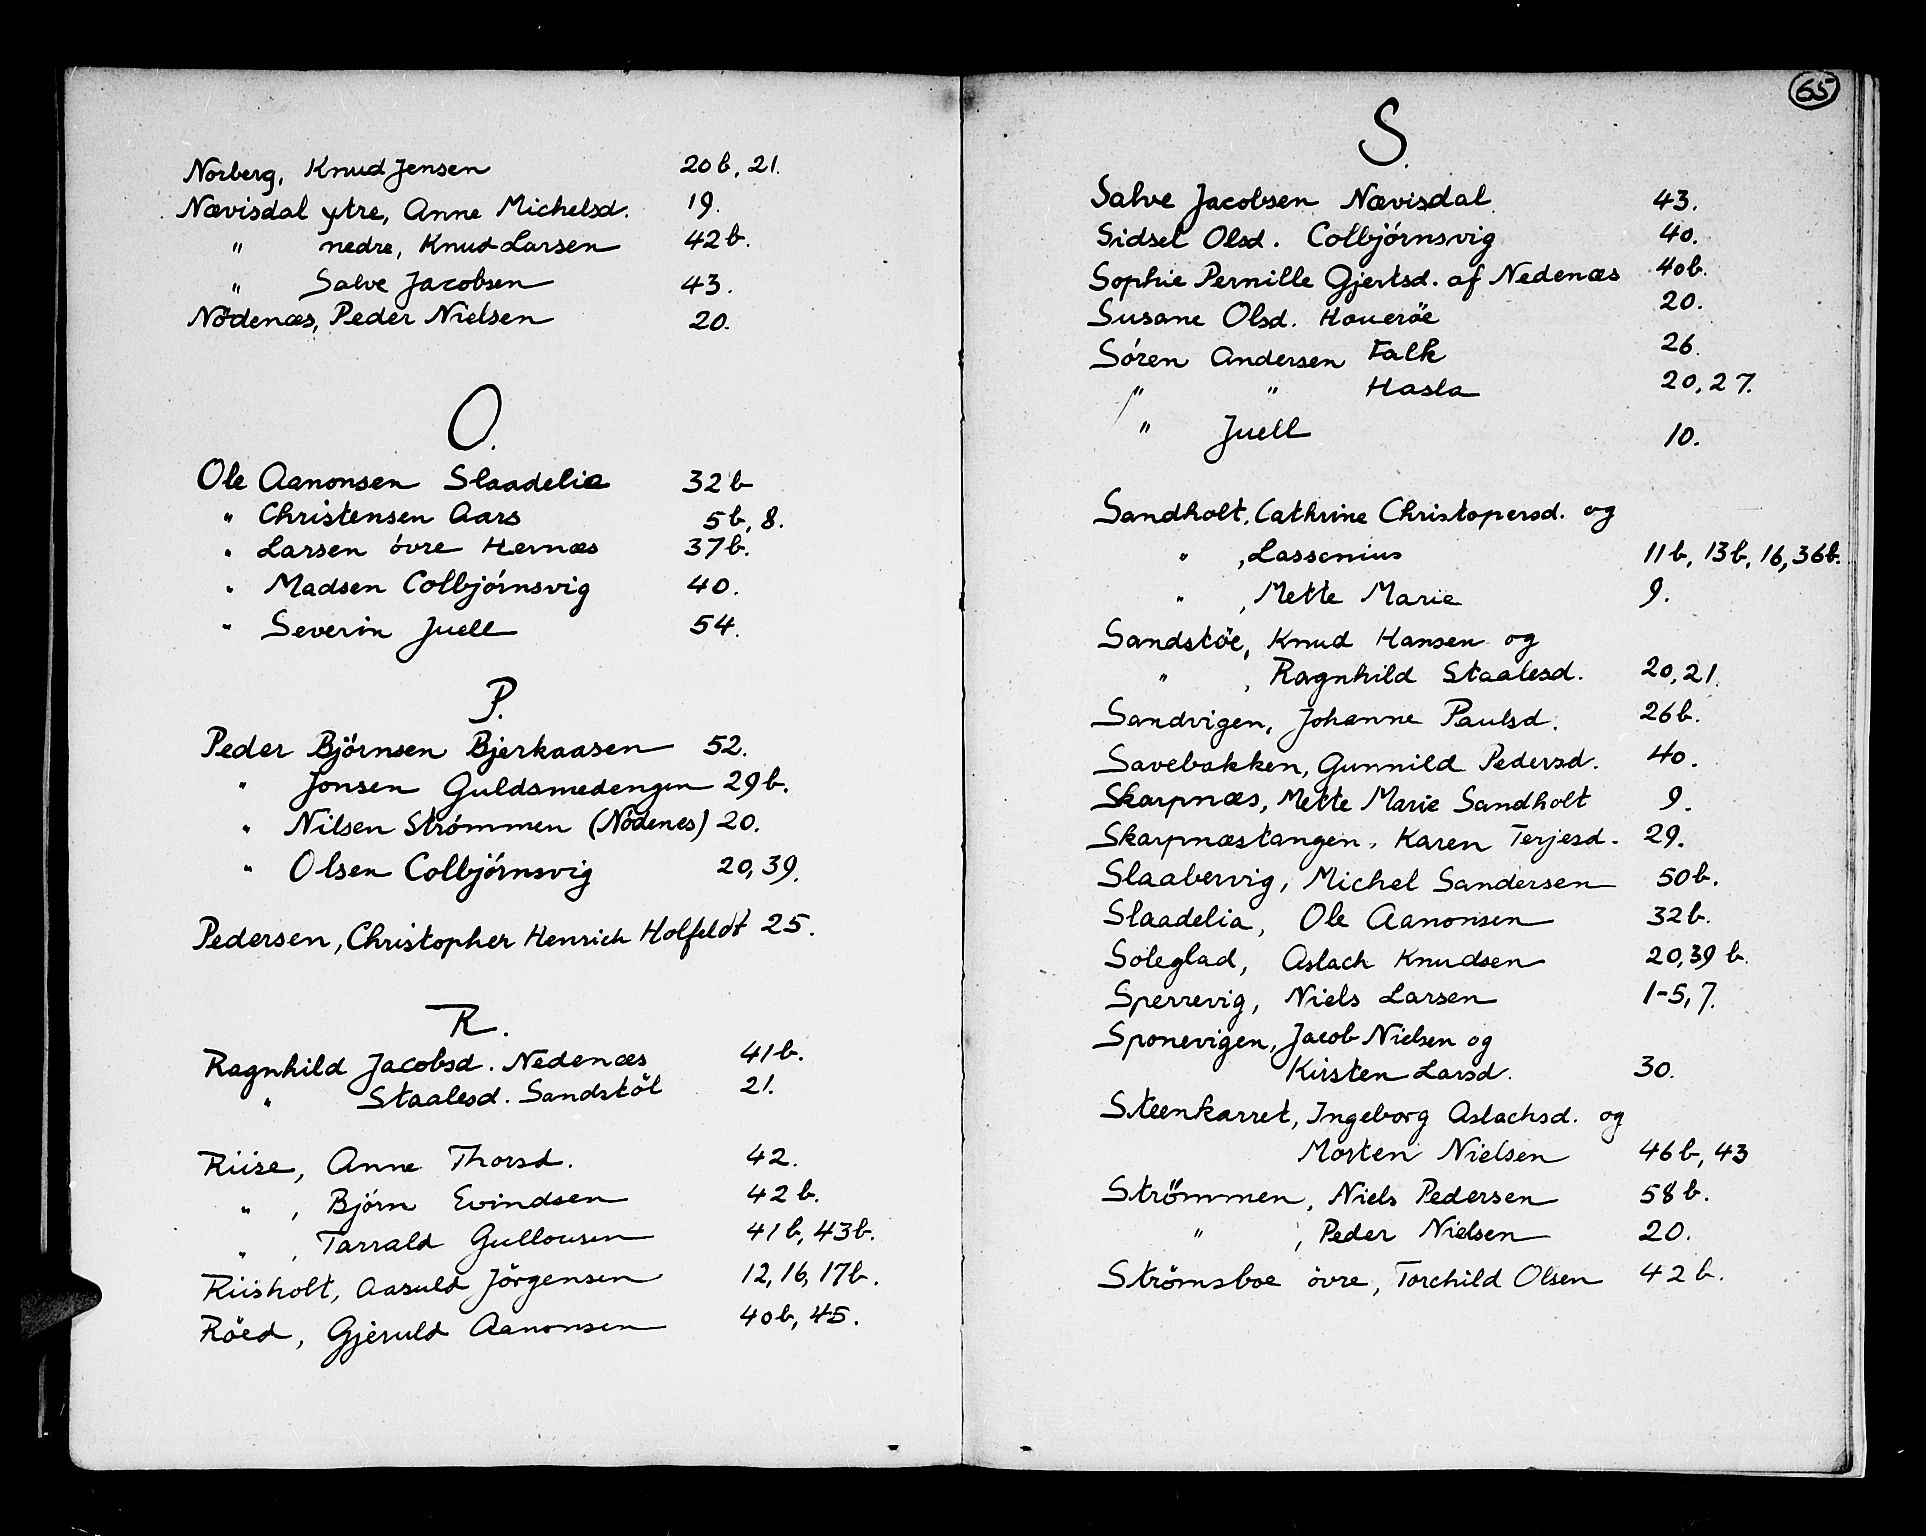 Norberg, Knud Jensen 20b, 21.
Nævisdal ytre, Anne Michelsd. 19.
" nedre, Knud Larsen 42b.
" Salve Jacobsen 43.
Nödenæs, Peder Nielsen 20.
O.
Ole Aanonsen Slaadelia 32b
" Christensen Aars 5b, 8.
" Larsen övre Hernæs 37b.
" Madsen Colbjörnsvig 40.
" Severin Juell 54.
P.
Peder Björnsen Bjerkaasen 52.
" Jonsen Guldsmedengen 29b.
" Nilsen Strömmen (Nödenes) 20.
" Olsen Colbjörnsvig 20, 39.
Pedersen, Christopher Henrich Holfeldt 25.
R.
Ragnhild Jacobsd. Nedenæs 41b.
" Staalesd. Sandstöl 21.
Riise, Anne Thorsd. 42.
" , Björn Evindsen 42b.
" , Tarrald Gullousen 41b, 43b.
Riisholt, Aasuld Jörgensen 12, 16, 17b.
Röed, Gjeruld Aanonsen 40b, 45.
65
S.
Salve Jacobsen Nævisdal 43.
Sidsel Olsd. Colbjörnsvig 40.
Sophie Pernille Gjertsd. af Nedenæs 40b.
Susane Olsd. Haueröe 20.
Sören Andersen Falk 26.
" " Hasla 20, 27.
" Juell 10.
Sandholt, Cathrine Christopersd. og
" , Lassenius 11b, 13b, 16, 36b.
" , Mette Marie 9.
Sandstöe, Knud Hansen og
" , Ragnhild Staalesd. 20, 21.
Sandvigen, Johanne Paulsd. 26b.
Savebakken, Gunnild Pedersd. 40.
Skarpnæs, Mette Marie Sandholt 9.
Skarpnæstangen, Karen Terjesd. 29.
Slaabervig, Michel Sandersen 50b.
Slaadelia, Ole Aanonsen 32b.
Soleglad, Aslach Knudsen 20, 39b.
Sperrevig, Niels Larsen 1-5, 7.
Sponevigen, Jacob Nielsen og
Kirsten Larsd. 30.
Steenkarret, Ingeborg Aslachsd. og
Morten Nielsen 46b, 43
Strömmen, Niels Pedersen 58b.
" , Peder Nielsen 20.
Strömsboe övre, Torchild Olsen 42b.